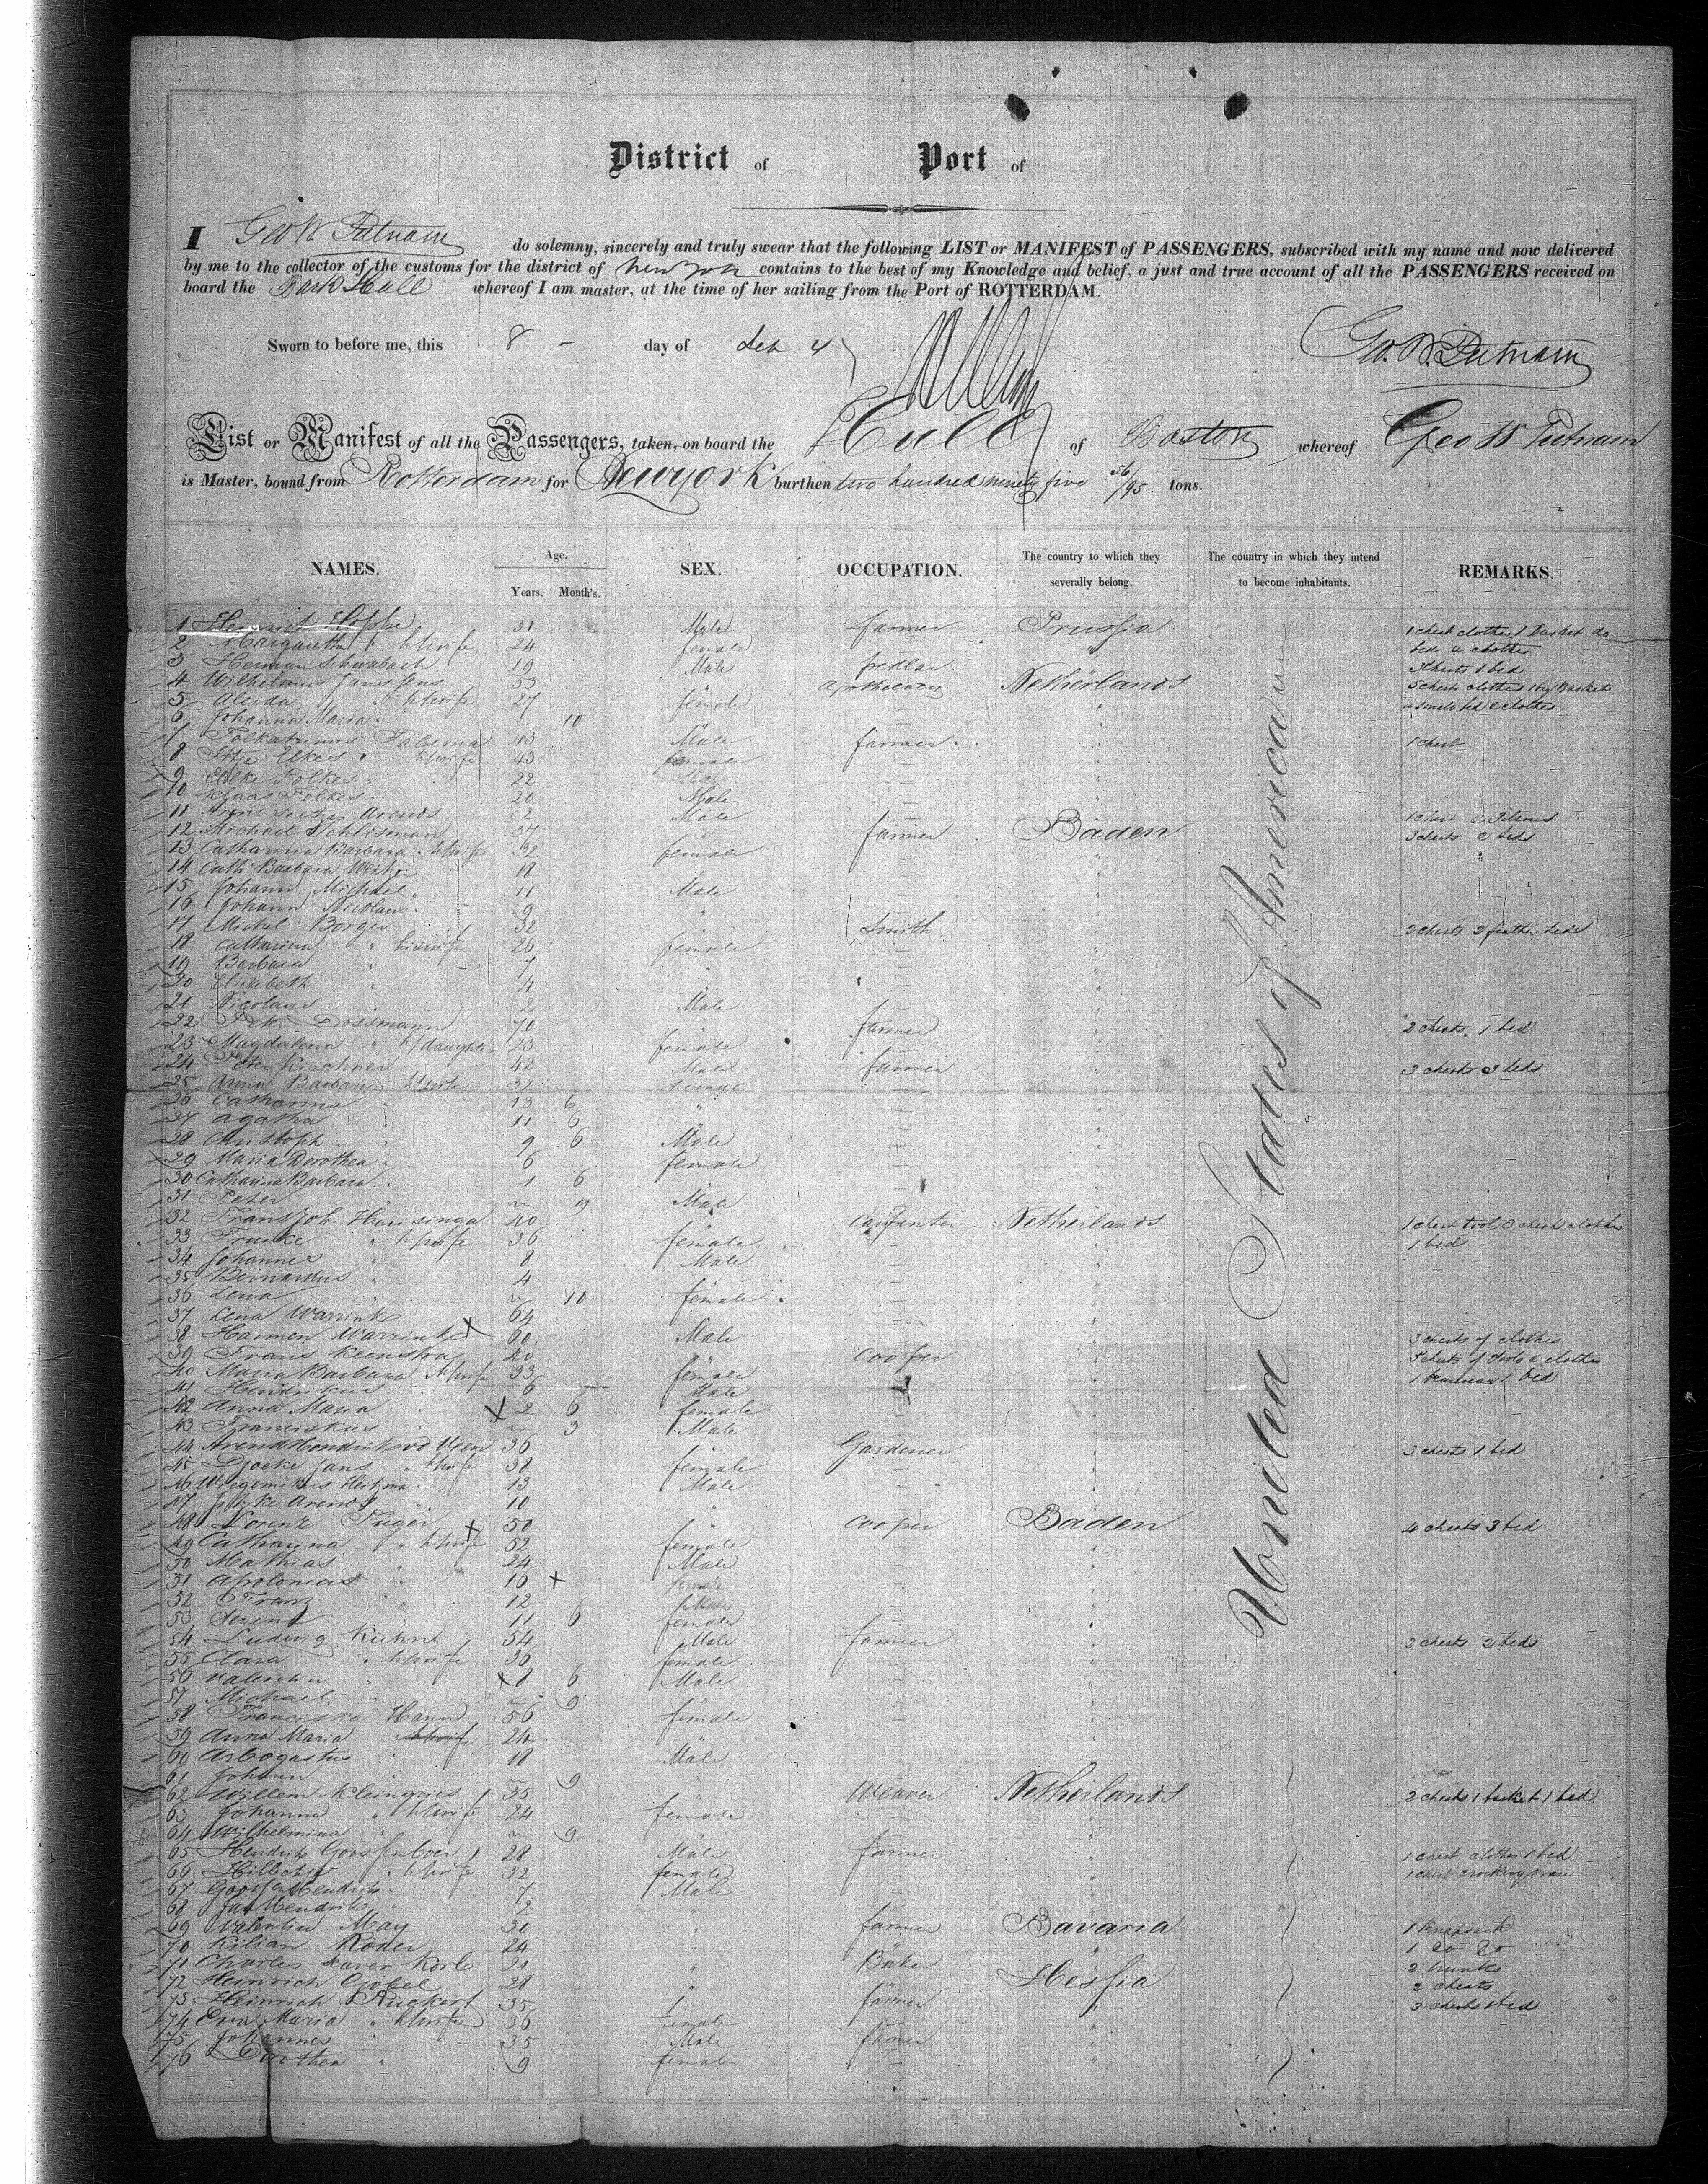 District of Port of
I Geo W Putnam do solemny, sincerely and truly swear that the following LIST or MANIFEST of PASSENGERS, subscribed with my name and now delivered
by me to the collector of the customs for the district of New York contains to the best of my Knowledge and belief, a just and true account of all the PASSENGERS received on
board the Bark Hull whereof I am master, at the time of her sailing from the Port of ROTTERDAM.
Sworn to before me, this 8 - day of 4 Geo. W. Putnam
List or Manifest of all the Passengers, taken, on board the Hull of Boston whereof Geo W Putnam
is Master, bound from Rotterdam for Newyork burthen two hundred ninety five 56/95 tons.
NAMES. Age. SEX. OCCUPATION. The country to which they The country in which they intend REMARKS.
Years. Month's. severally belong. to become inhabitants.
United States of America
1 Heinrich Hoppe 31 Male farmer Prussia 1 chest clothes 1 Basket do
2 Margaretha " h/wife 24 female bed & clothes
3 Herman Schwabach 19 Male pedlar. chests 1 bed
4 Wilhelmus Janssens 53 " apothecary Netherlands 5 chests clothes Basket
5 Aleida " h/wife 27 female — " bed & clothes
6 Johanna Maria " 10 " — "
7 Talsma 43 Male farmer " 1 chest
8 Ukes " h/wife 43 female — "
9 Folkes " 22 Male — "
10 Klaas Folkes " 20 Male — "
11 Arend Arends 2 Male — " 1 chest
12 Michael Schlesman 37 " farmer Baden 3 chests 2 beds
13 Catharina Barbara " h/wife 32 female — "
14 Cath. Barbara 18 " — "
15 Johann Michael " 11 Male — "
16 Johann Nicolaus " 9 " — "
17 Michel Borger 32 " Smith " 3 chests 3 feather beds
18 Catharina " his wife 26 female — "
19 Barbara " 7 " — "
20 Elisabeth " 4 " — "
21 Nicolaas 2 Male — "
22 Dossmann 70 " farmer " 2 chests. 1 bed
23 Magdalena " h/daughter 23 female — "
24 Peter Kirchner 42 Male farmer " 3 chests 3 beds
25 Anna Barbara " h/wife 32 female — "
26 Catharina " 13 6 " — "
27 Agatha " 11 6 " — "
28 Christoph " 9 6 Male — "
29 Maria Dorothea " 6 female — "
30 Catharina Barbara " 1 6 " — "
31 Peter " 9 Male — "
32 Frans Joh. Huisinga 40 " Carpenter Netherlands 1 chest tools 3 chests clothes
33 " h/wife 36 female — " 1 bed
34 Johannes " 8 Male — "
35 Bernardus " 4 " — "
36 Lena " 10 female — "
37 Lena Warrink 64 " — "
38 Harmen Warrink X 60 Male — " 3 chests of clothes
39 Frans Keenstra 40 " Cooper " 5 chests of Tools & clothes
40 Maria Barbara h/wife 33 female — " 1 1 bed
41 Hendrikus 6 Male — "
42 Anna Maria " X 2 6 female — "
43 Franciskus " 3 Male — "
44 Arend Hendriks vd Veen 36 " Gardener " 3 chests 1 bed
45 Djoeke Jans " h/wife 38 female — "
46 13 Male — "
47 Arends 10 " — "
48 Lorenz Füger X 50 " Cooper Baden 4 chests 3 bed
49 Catharina " h/wife 52 female — "
50 Mathias " 24 Male — "
51 Apolonias " 16 X female — "
52 Franz " 12 Male — "
53 " 11 6 female — "
54 Ludwig Kuhn 54 Male farmer " 2 chests 2 beds
55 Clara " h/wife 36 female — "
56 Valentin " X 8 6 Male — "
57 Michael " 9 " — "
58 Franciska Hann 56 female — "
59 Anna Maria h/wife 24 " — "
60 Arbogastus " 18 Male — "
61 Johann " 9 " — "
62 Willem Kleingries 35 " Weaver Netherlands 2 chests 1 basket 1 bed
63 Johanna " h/wife 24 female — "
64 Wilhelmina " 9 " — "
65 Hendrik Goossen Boer 28 Male farmer " 1 chest clothes 1 bed
66 " h/wife 32 female — " 1 chest crockery ware
67 Goossen Hendrik " 7 Male — "
68 Jan Hendrik " 2 " — "
69 Valentin May 30 " farmer Bavaria 1 knapsack
70 Kilian Röder 24 " — " 1 do do
71 Charles Xaver Korb 21 " Baker " 2 trunks
72 Heinrich Göbel 28 " — Hessia 2 chests
73 Heinrich Rückert 35 " farmer " 3 chests bed
74 Eva Maria " h/wife 36 female — "
75 Johannes " 35 Male farmer "
76 Dorothea " 9 female — "